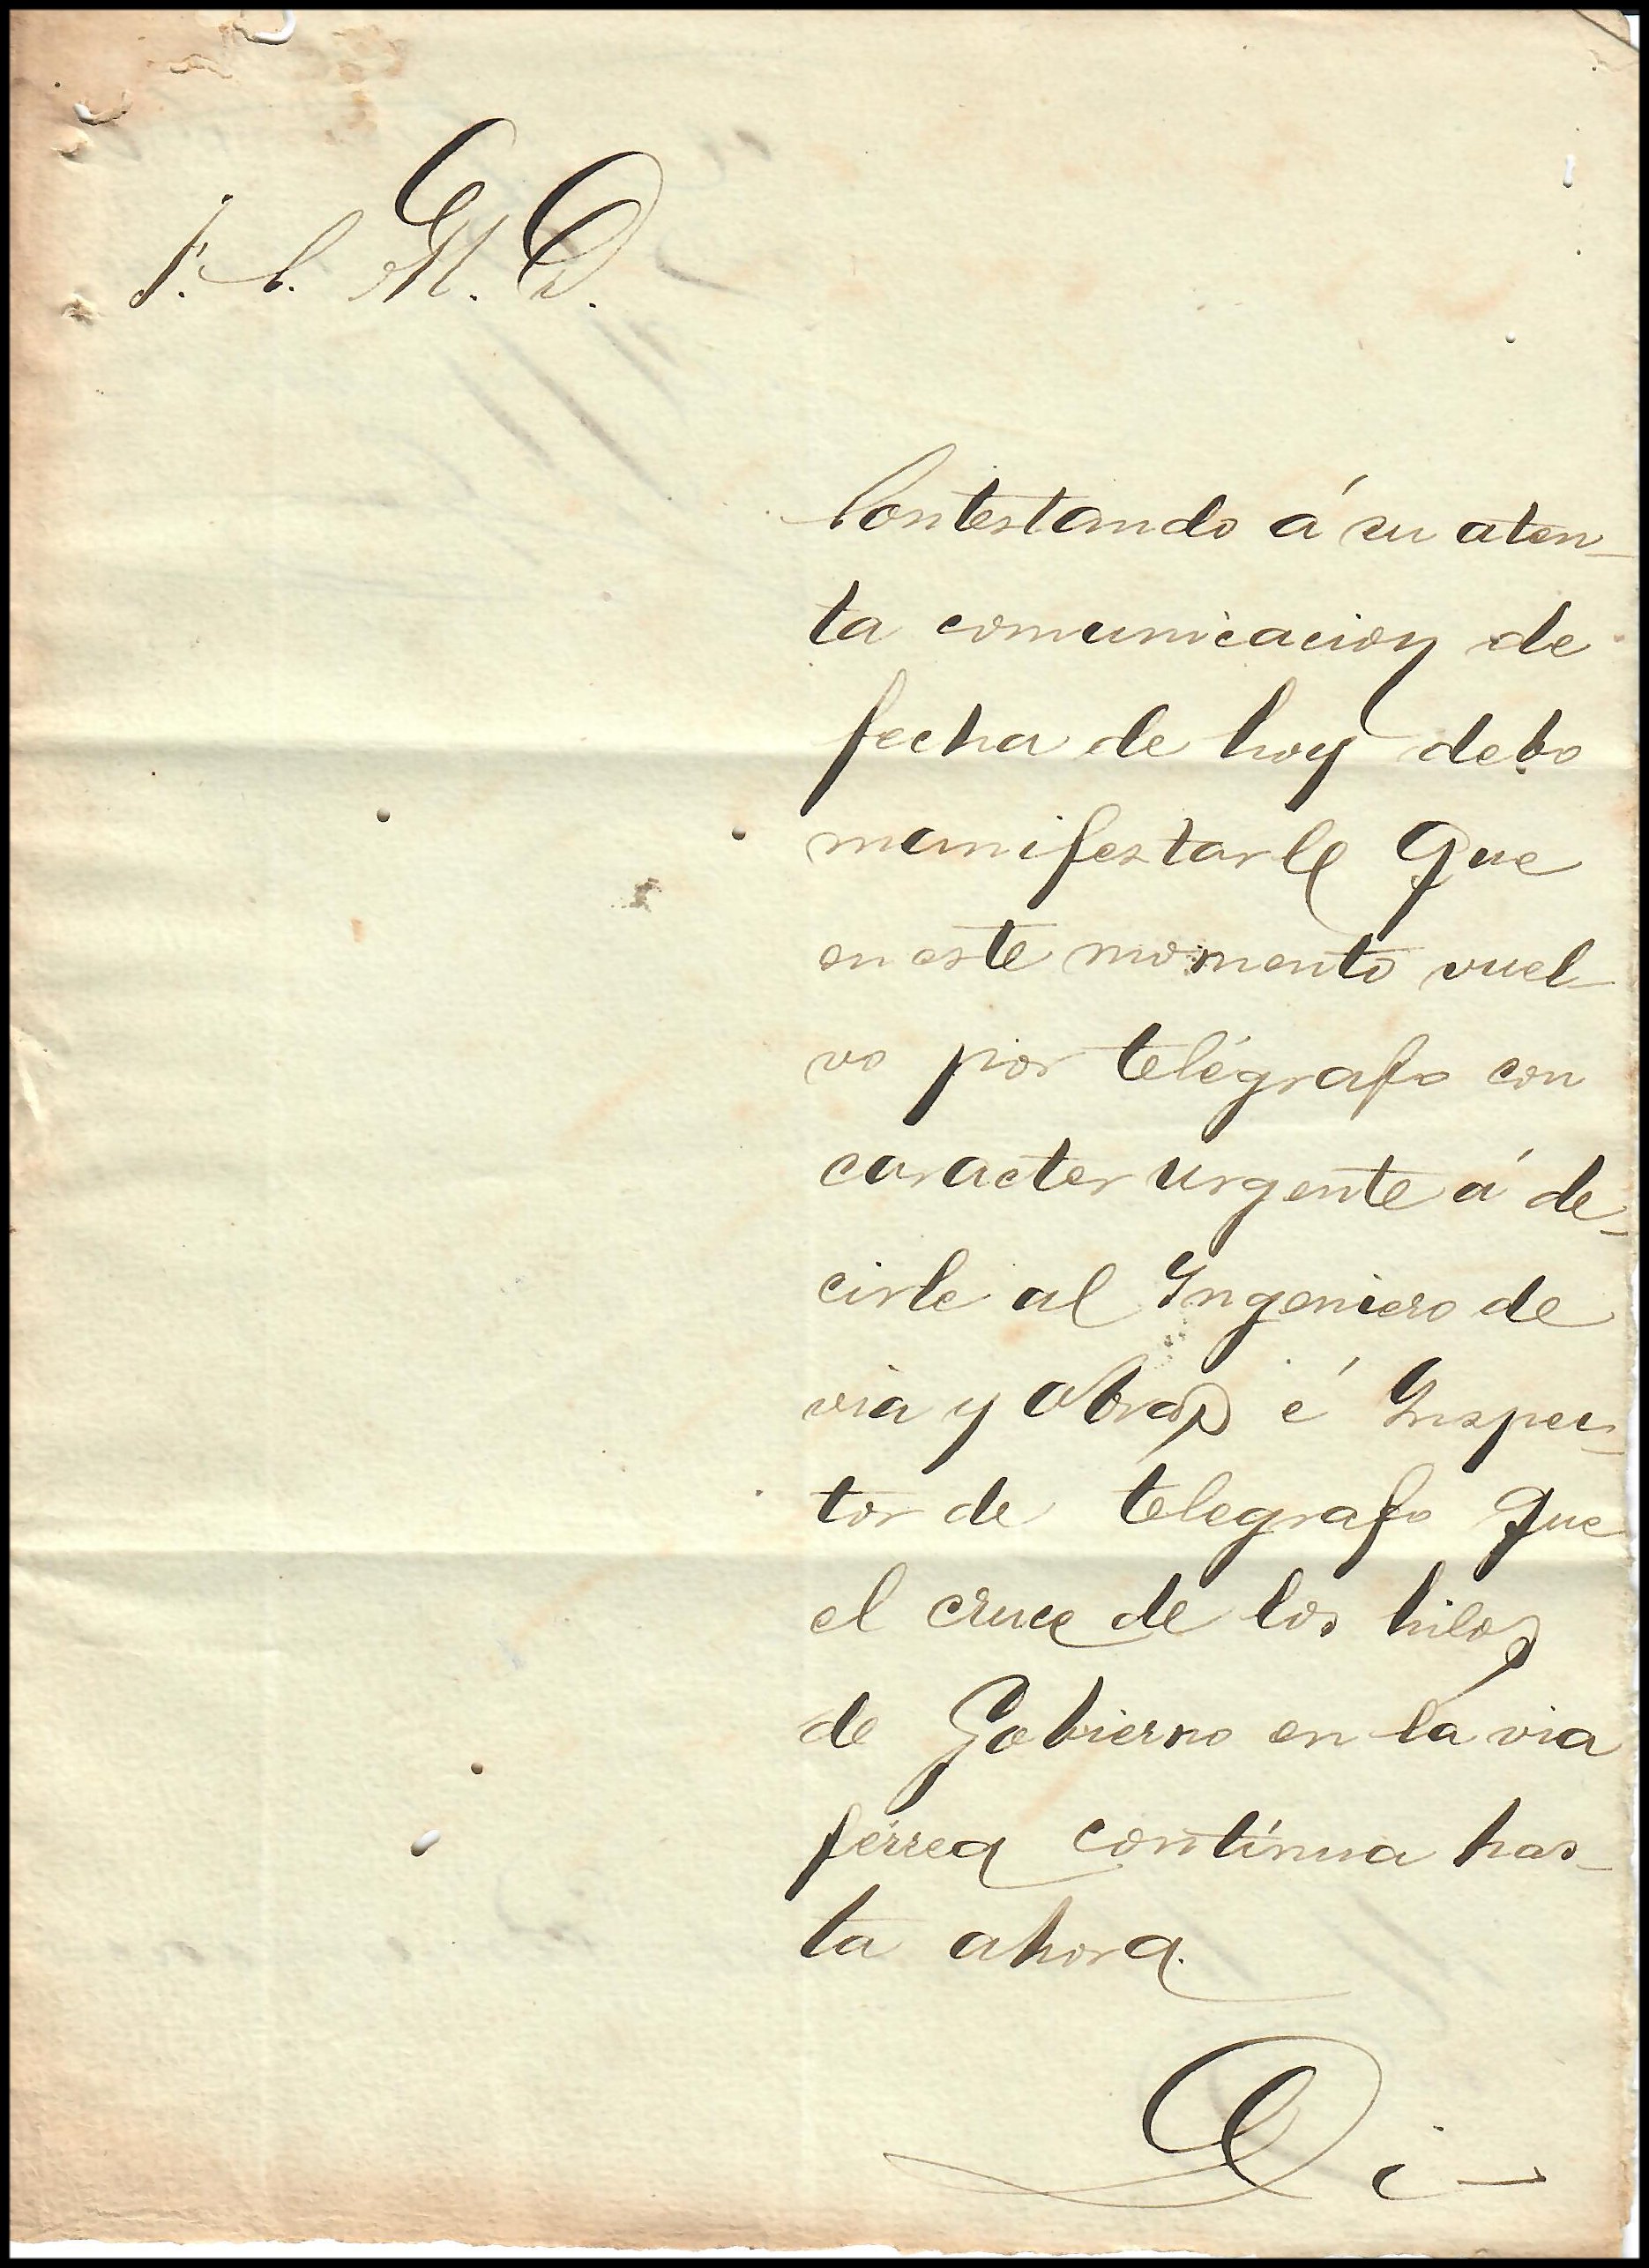 F. C. M. O.
Contestando á su aten-
ta comunicacion de
fecha de hoy debo
manifestarle que
en este momento vuel-
vo por telégrafo con
caracter urgente á de-
cirle al Ingeniero de
via y obras é Inspec-
tor de telegrafo que
el cruce de los hilos
de Gobierno en la via
férrea contínua has-
ta ahora.
Di-